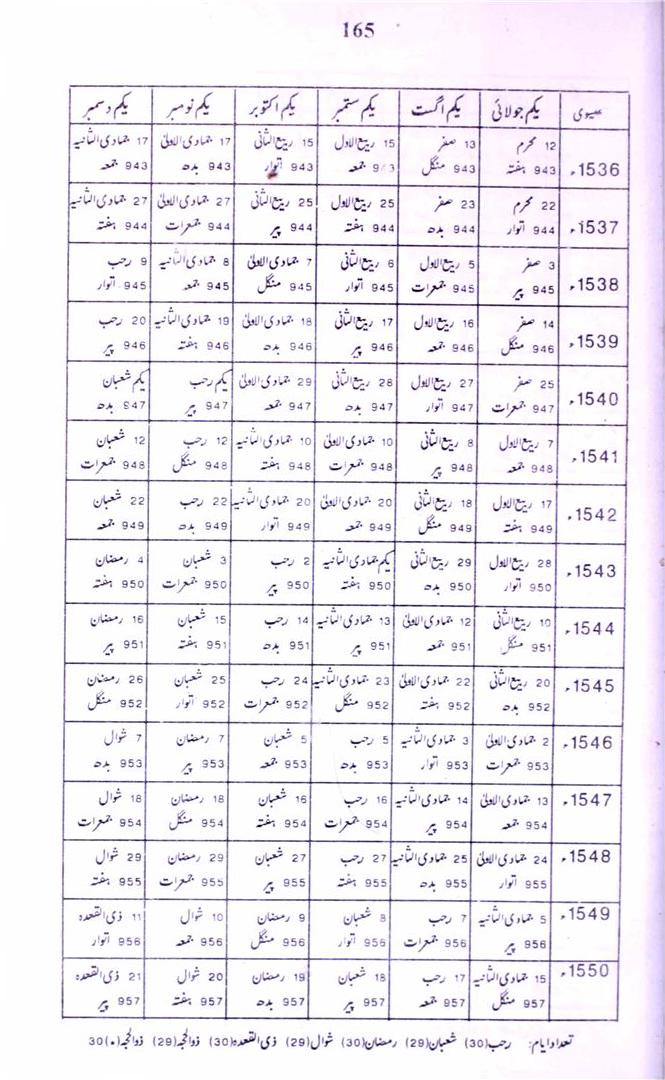 165
عیسوی یکم جولائی یکم اگست یکم ستمبر یکم اکتوبر یکم نومبر یکم دسمبر
1536ء 12 محرم 13 صفر 15 ربیع الاول 15 ربیع الثانی 17 جمادی الاولیٰ 17 جمادی الثانیہ
943 ہفتہ 943 منگل 943 جمعہ 943 اتوار 943 بدھ 943 جمعہ
1537ء 22 محرم 23 صفر 25 ربیع الاول 25 ربیع الثانی 27 جمادی الاولیٰ 27 جمادی الثانیہ
944 اتوار 944 بدھ 944 ہفتہ 944 پیر 944 جمعرات 944 ہفتہ
1538ء 3 صفر 5 ربیع الاول 6 ربیع الثانی 7 جمادی الاولیٰ 8 جمادی الثانیہ 9 رجب
945 پیر 945 جمعرات 945 اتوار 945 منگل 945 جمعہ 945 اتوار
1539ء 14 صفر 16 ربیع الاول 17 ربیع الثانی 18 جمادی الاولیٰ 19 جمادی الثانیہ 20 رجب
946 منگل 946 جمعہ 946 پیر 946 بدھ 946 ہفتہ 946 پیر
1540ء 25 صفر 27 ربیع الاول 28 ربیع الثانی 29 جمادی الاولیٰ یکم رجب یکم شعبان
947 جمعرات 947 اتوار 947 بدھ 947 جمعہ 947 پیر 947 بدھ
1541ء 7 ربیع الاول 8 ربیع الثانی 10 جمادی الاولیٰ 10 جمادی الثانیہ 12 رجب 12 شعبان
948 جمعہ 948 پیر 948 جمعرات 948 ہفتہ 948 منگل 948 جمعرات
1542ء 17 ربیع الاول 18 ربیع الثانی 20 جمادی الاولیٰ 20 جمادی الثانیہ 22 رجب 22 شعبان
949 ہفتہ 949 منگل 949 جمعہ 949 اتوار 949 بدھ 949 جمعہ
1543ء 28 ربیع الاول 29 ربیع الثانی یکم جمادی الثانیہ 2 رجب 3 شعبان 4 رمضان
950 اتوار 950 بدھ 950 ہفتہ 950 پیر 950 جمعرات 950 ہفتہ
1544ء 10 ربیع الثانی 12 جمادی الاولیٰ 13 جمادی الثانیہ 14 رجب 15 شعبان 16 رمضان
951 منگل 951 جمعہ 951 پیر 951 بدھ 951 ہفتہ 951 پیر
1545ء 20 ربیع الثانی 22 جمادی الاولیٰ 23 جمادی الثانیہ 24 رجب 25 شعبان 26 رمضان
952 بدھ 952 ہفتہ 952 منگل 952 جمعرات 952 اتوار 952 منگل
1546ء 2 جمادی الاولیٰ 3 جمادی الثانیہ 5 رجب 5 شعبان 7 رمضان 7 شوال
953 جمعرات 953 اتوار 953 بدھ 953 جمعہ 953 پیر 953 بدھ
1547ء 13 جمادی الاولیٰ 14 جمادی الثانیہ 16 رجب 16 شعبان 18 رمضان 18 شوال
954 جمعہ 954 پیر 954 جمعرات 954 ہفتہ 954 منگل 954 جمعرات
1548ء 24 جمادی الاولیٰ 25 جمادی الثانیہ 27 رجب 27 شعبان 29 رمضان 29 شوال
955 اتوار 955 بدھ 955 ہفتہ 955 پیر 955 جمعرات 955 ہفتہ
1549ء 5 جمادی الثانیہ 7 رجب 8 شعبان 9 رمضان 10 شوال 11 ذی القعدہ
956 پیر 956 جمعرات 956 اتوار 956 منگل 956 جمعہ 956 اتوار
1550ء 15 جمادی الثانیہ 17 رجب 18 شعبان 19 رمضان 20 شوال 21 ذی القعدہ
957 منگل 957 جمعہ 957 پیر 957 بدھ 957 ہفتہ 957 پیر
تعداد ایام: رجب(30) شعبان(29) رمضان(30) شوال(29) ذی القعدہ(30) ذوالحجہ(29) ذوالحجہ(•)30